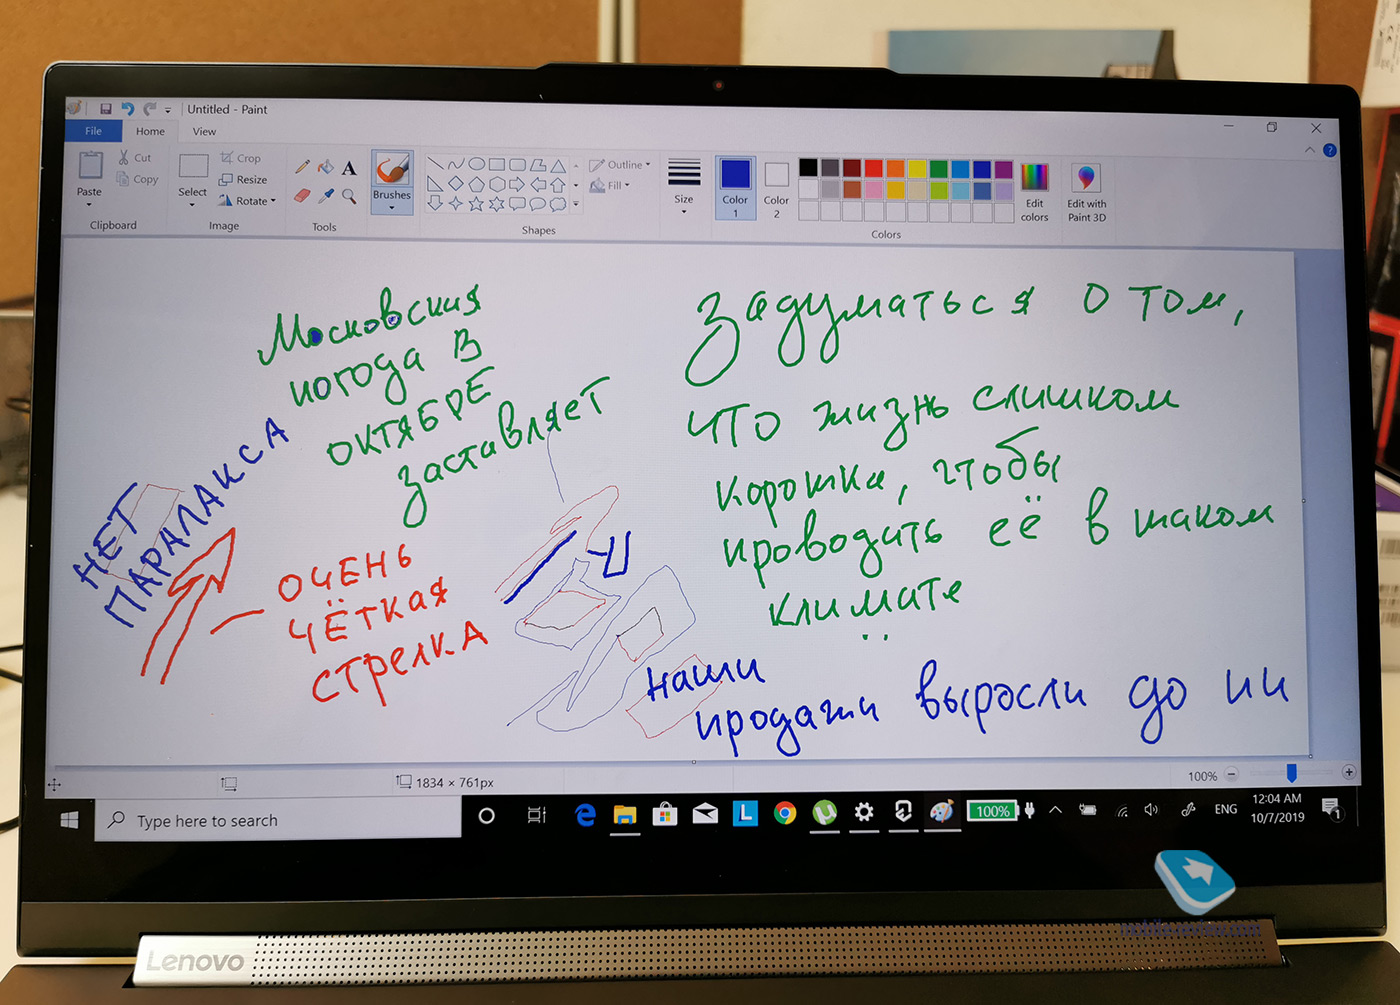 Untitled - Paint
File Home View
Paste
Cut
Copy
Clipboard
Select
Crop
Resize
Rotate
Image
A
Tools
Brushes
Outline
Fill
Shapes
Size
Color 1
Color 2
Edit colors
Colors
Edit with Paint 3D
Московская
погода в
ОКТЯБРЕ
заставляет
Задуматься о том,
что жизнь слишком
коротка, чтобы
проводить её в таком
климате
НЕТ
ПАРАЛАКСА
ОЧЕНЬ
ЧЁТКАЯ
СТРЕЛКА
наши
продажи выросли до
1834 × 761px
100%
Type here to search
L
100%
ENG
12:04 AM
10/7/2019
1
Lenovo